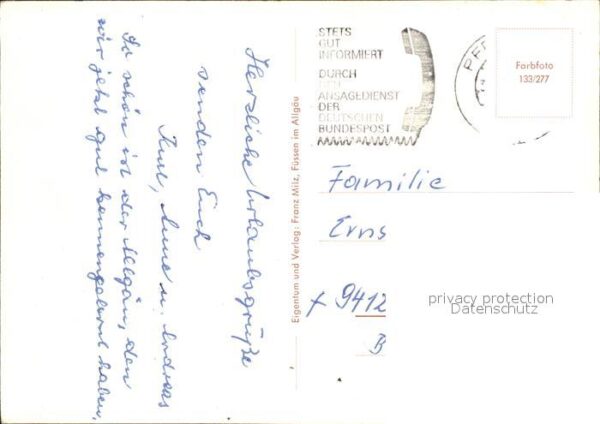 Herzliche Urlaubsgrüße
senden Euch
Anne u. Andreas
So schön ist der Allgäu, den
wir jetzt gut kennengelernt haben.
Eigentum und Verlag: Franz Milz, Füssen im Allgäu
STETS
GUT
INFORMIERT
DURCH
DEN
ANSAGEDIENST
DER
DEUTSCHEN
BUNDESPOST
PF
Farbfoto
133/277
Familie
Erns
x 9412
B
privacy protection
Datenschutz